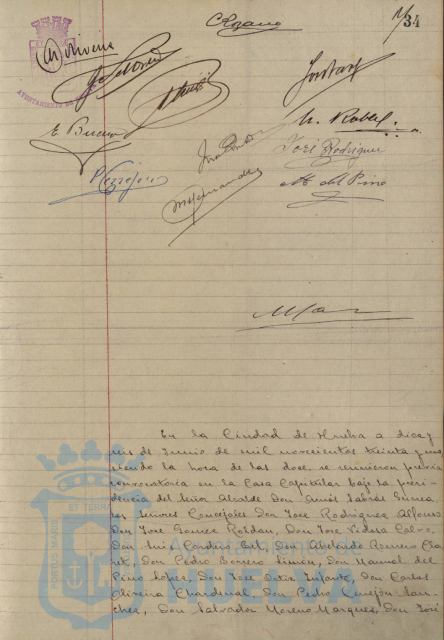 1/34
E. Bueno
M. Robles
José Rodriguez
M. del Pino
M. Hernandez
En la Ciudad de Huelva a diez y
seis de Junio de mil novecientos treinta y uno
siendo la hora de las doce, se reunieron previa
convocatoria en la Casa Capitular bajo la presi
dencia del Señor Alcalde Don Amós Sabrás Gurrea
los Señores Concejales Don José Rodriguez Alfonso
Don José Gomez Roldan, Don José Pidera Calvo,
Don Luis Cordero Bel, Don Abelardo Romero Cla
ret, Don Pedro Borrero Limón, Don Manuel del
Pino Lopez, Don José Ortiz Infante, Don Carlos
Oliveira Chardenal, Don Pedro Cerrejón San
chez, Don Salvador Moreno Marquez, Don José
Ayuntamiento de
HUELVA
PORTUS MARIS ET TERRAE